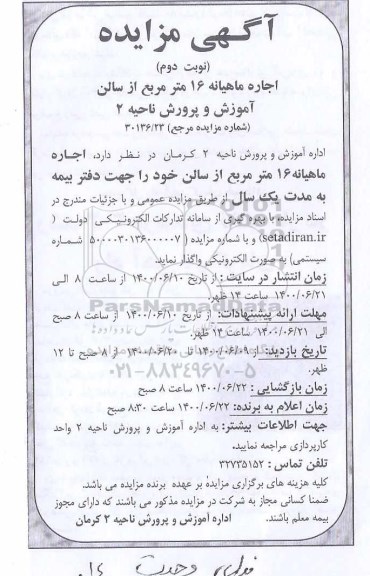 آگهی مزایده
(نوبت دوم)
اجاره ماهیانه ۱۶ متر مربع از سالن
آموزش و پرورش ناحیه ۲
(شماره مزایده مرجع) ۳۰۱۳۶/۲۳
اداره آموزش و پرورش ناحیه ۲ کرمان در نظر دارد، اجاره
ماهیانه۱۶ متر مربع از سالن خود را جهت دفتر بیمه
به مدت یک سال از طریق مزایده عمومی و با جزئیات مندرج در
اسناد مزایده، با بهره گیری از سامانه تدارکات الکترونیکی دولت (
setadiran.ir) و با شماره مزایده ( ۵۰۰۰۰۳۰۱۳۶۰۰۰۰۰۷ شماره
سیستمی) به صورت الکترونیکی واگذار نماید.
زمان انتشار در سایت : از تاریخ ۱۴۰۰/۰۶/۱۰ از ساعت ۸ الی
۱۴۰۰/۰۶/۲۱ ساعت ۱۴ ظهر.
مهلت ارائه پیشنهادات: از تاریخ ۱۴۰۰/۰۶/۱۰ از ساعت ۸ صبح
الی ۱۴۰۰/۰۶/۲۱ ساعت ۱۴ ظهر.
تاریخ بازدید: از ۱۴۰۰/۰۶/۰۹ تا ۱۴۰۰/۰۶/۲۰ از ۸ صبح تا ۱۲
ظهر.
زمان بازگشایی : ۱۴۰۰/۰۶/۲۲ ساعت ۸ صبح
زمان اعلام به برنده: ۱۴۰۰/۰۶/۲۲ ساعت ۸:۳۰ صبح
جهت اطلاعات بیشتر: به اداره آموزش و پرورش ناحیه ۲ واحد
کارپردازی مراجعه نمایید.
تلفن تماس : ۳۲۷۳۵۱۵۲
کلیه هزینه های برگزاری مزایده بر عهده برنده مزایده می باشد.
ضمنا کسانی مجاز به شرکت در مزایده مذکور می باشند که دارای مجوز
بیمه معلم باشند. اداره آموزش و پرورش ناحیه ۲ کرمان
ParsNamadData
۰۲۱-۸۸۳۴۹۶۷۰-۵
وحدت